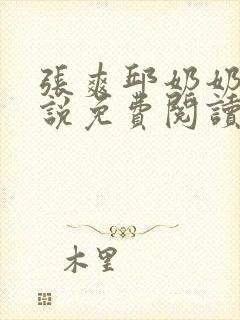 張爽邱奶奶
說免費閱讀
木里